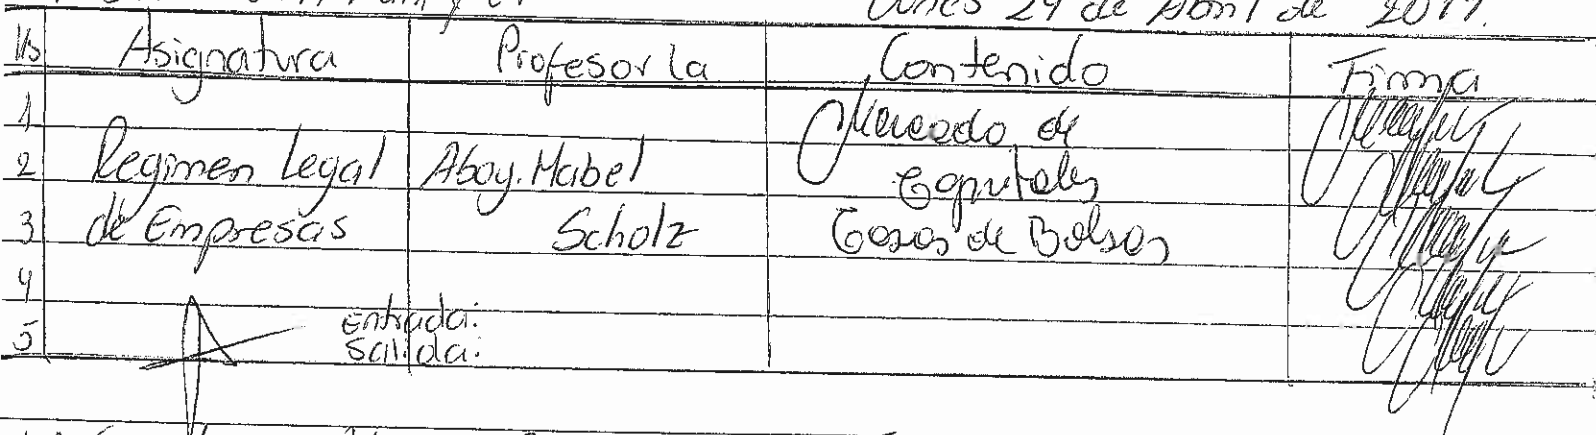 Lunes 29 de Abril de 2019.
Hs Asignatura Profesor/a Contenido Firma
1 Mercado de
2 Regimen Legal Abog. Mabel Capitales
3 de Empresas Scholz Casas de Bolsas
4
Entrada:
5 Salida: